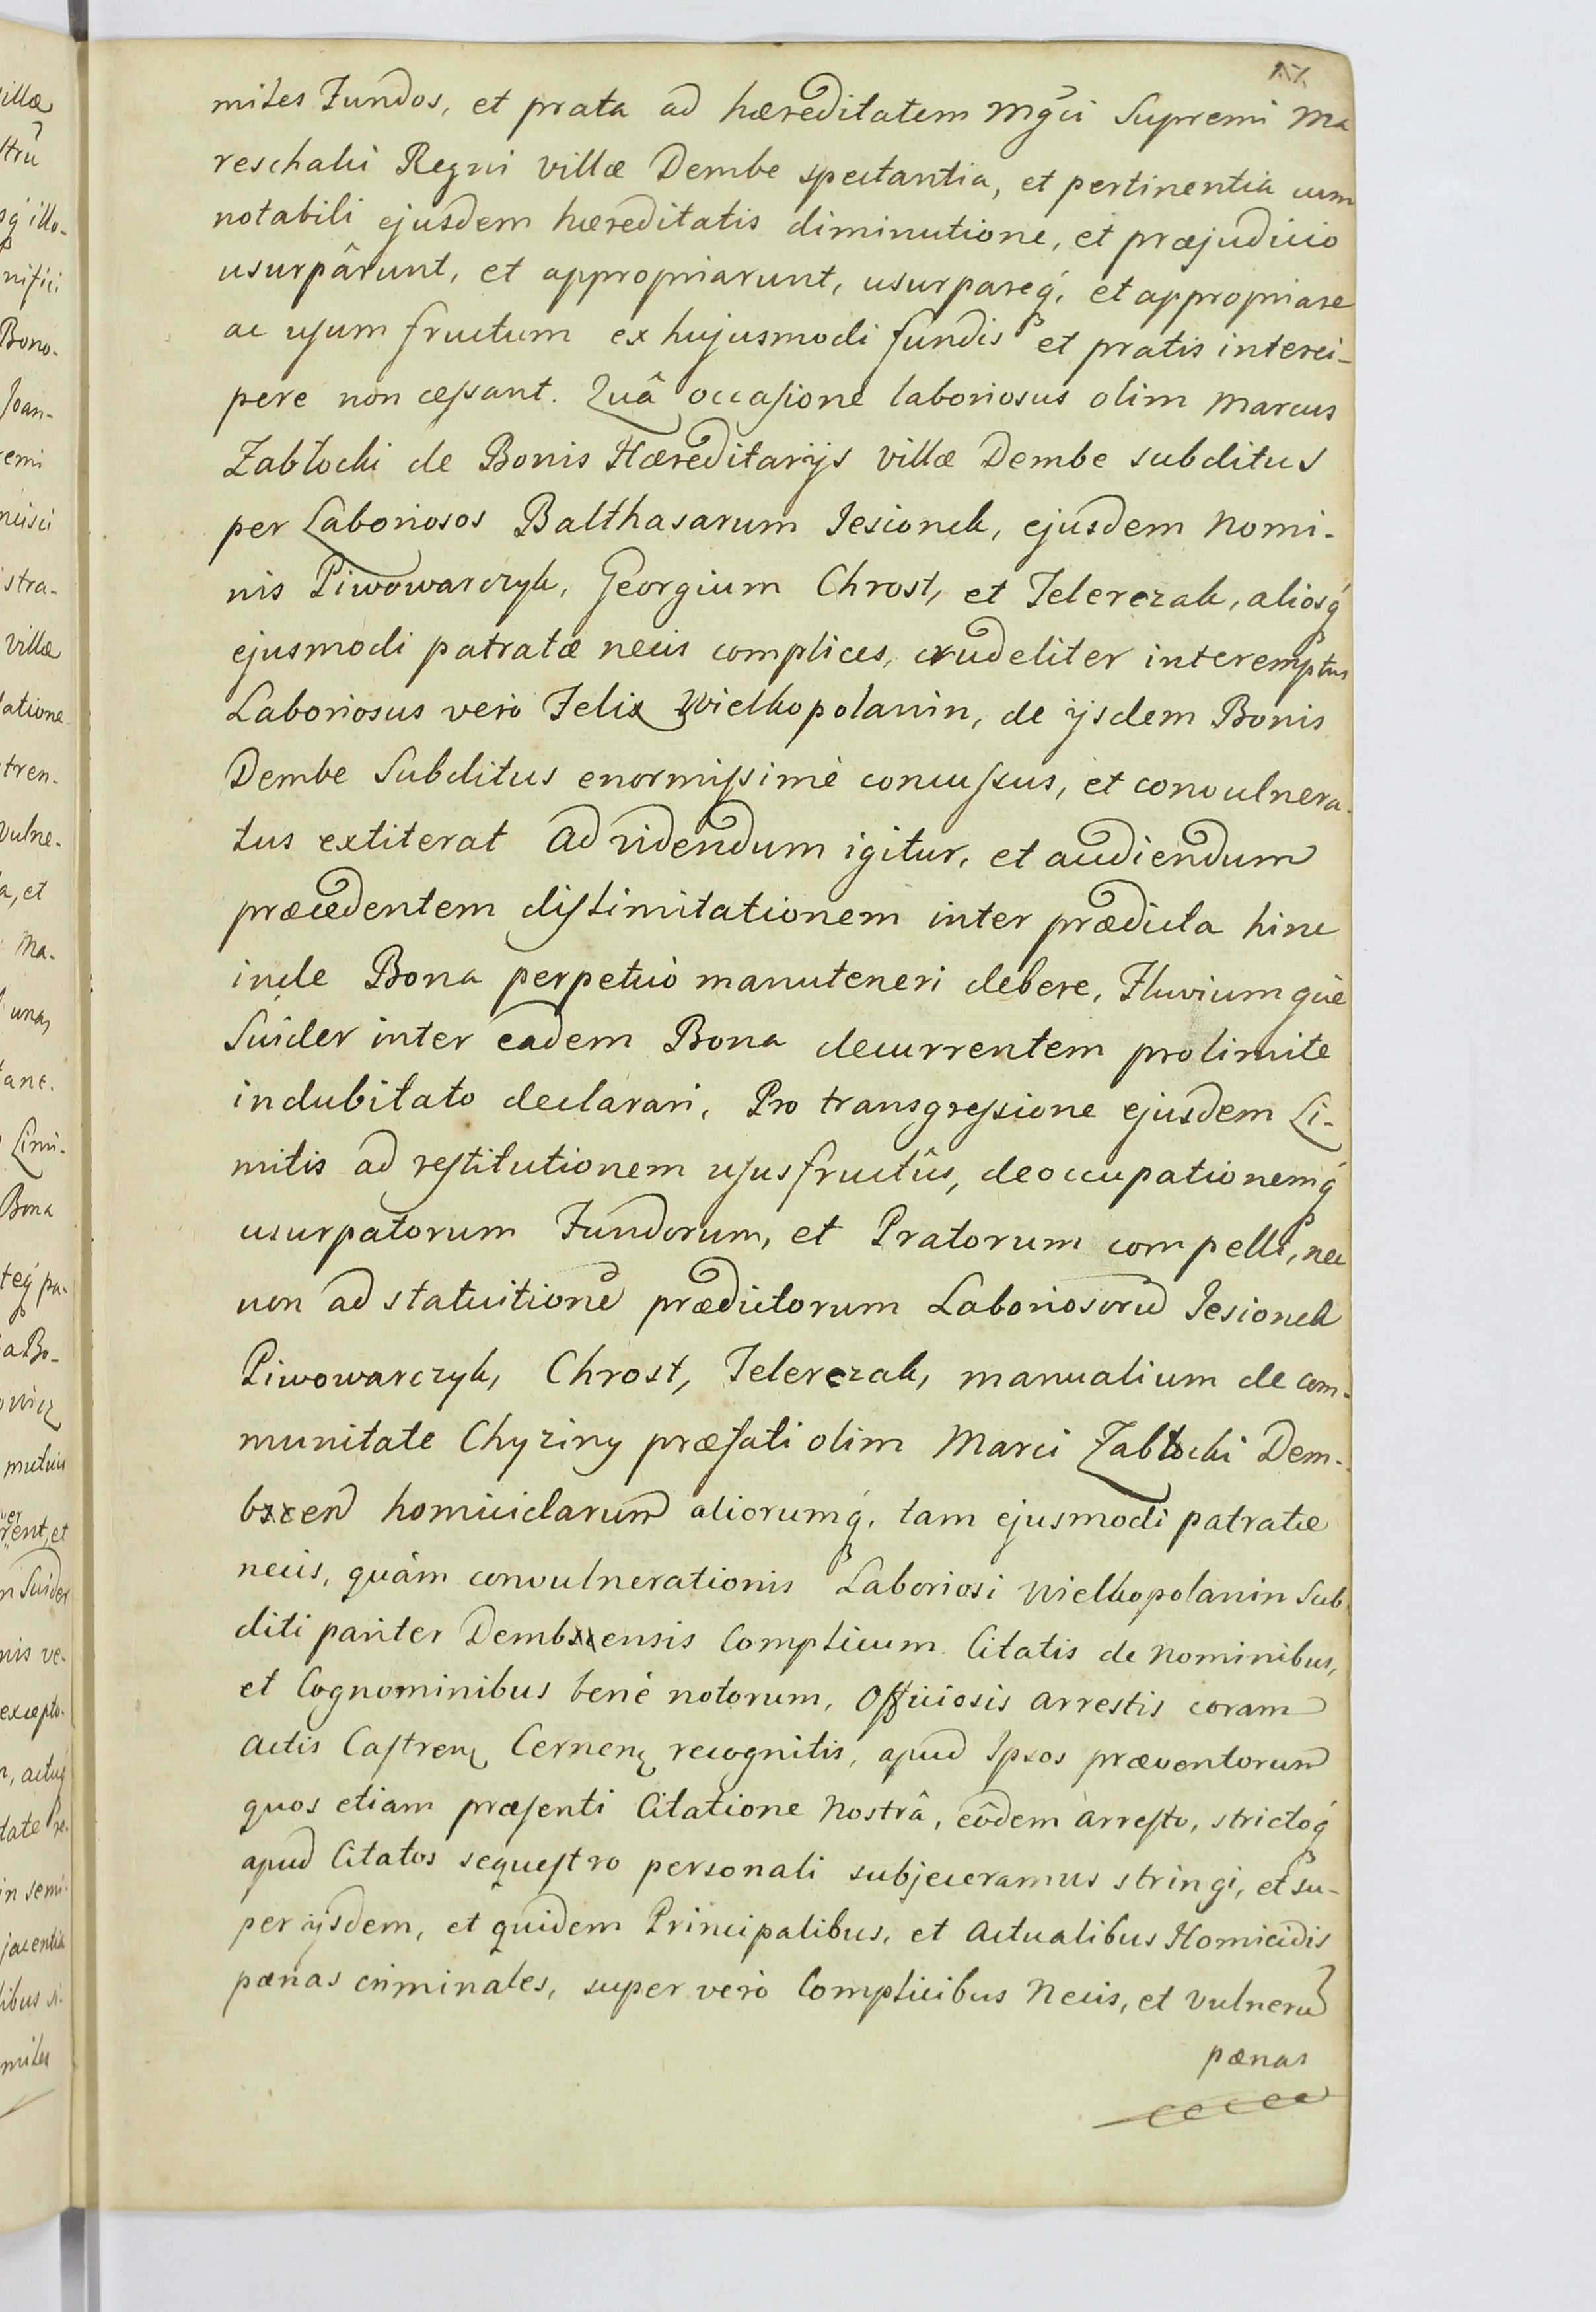 mites Fundos, et prata ad hæreditatem Mgci Supremi Ma
reschalci Regni villæ Dembe spectantia, et pertinentia cum
notabili ejusdem hæreditatis diminutione, et præjudicio
usurpârunt, et appropriarunt, usurpareq́, et appropriare
ac usum fructum ex hujusmodi fundis et pratis interci-
pere non cessant. Quâ occasione laboriosus olim Marcus
Zabłocki de Bonis Hæreditarijs villæ Dembe subditus
per Laboriosos Balthasarum Jesionek, ejusdem Nomi-
nis Piwowarczyk, Georgium Chrost, et Felerczak, aliosq́
ejusmodi patratæ necis complices, crudeliter interemptus
Laboriosus verò Felix Wielkopolanin, de ijsdem Bonis
Dembe Subditus enormissimè concussus, et convulnera-
tus extiterat Ad videndum igitur, et audiendum
præcedentem dislimitationem inter prædicta hinc
inde Bona perpetuò manuteneri debere, Fluviumquè
Suider inter eadem Bona decurrentem pro limite
indubitato declarari, Pro transgressione ejusdem Li-
mitis ad restitutionem ususfructûs, deoccupationemq́
usurpatorum Fundorum, et Pratorum compelli, nec
non ad statuitionē prædictorum Laboriosorū Jesionek
Piwowarczyk, Chrost, Felerczak, manualium de com-
munitate Chyziny præfati olim Marci Zabłocki Dem-
bscen homicidarum aliorumq́, tam ejusmodi patratæ
necis, quàm convulnerationis Laboriosi Wielkopolanin Sub
diti pariter Dembscensis Complicum. Citatis de Nominibus,
et Cognominibus benè notorum, Officiosis Arrestis coram
Actis Castren Cernen recognitis, apud Ipsos præventorum
quos etiam præsenti Citatione Nostrâ, eôdem Arresto, strictoq́
apud Citatos sequestro personali subjeceramus stringi, et su-
per ijsdem, et quidem Principalibus, et Actualibus Homicidis
pœnas criminales, super verò Complicibus Necis, et vulnerū
pœnas